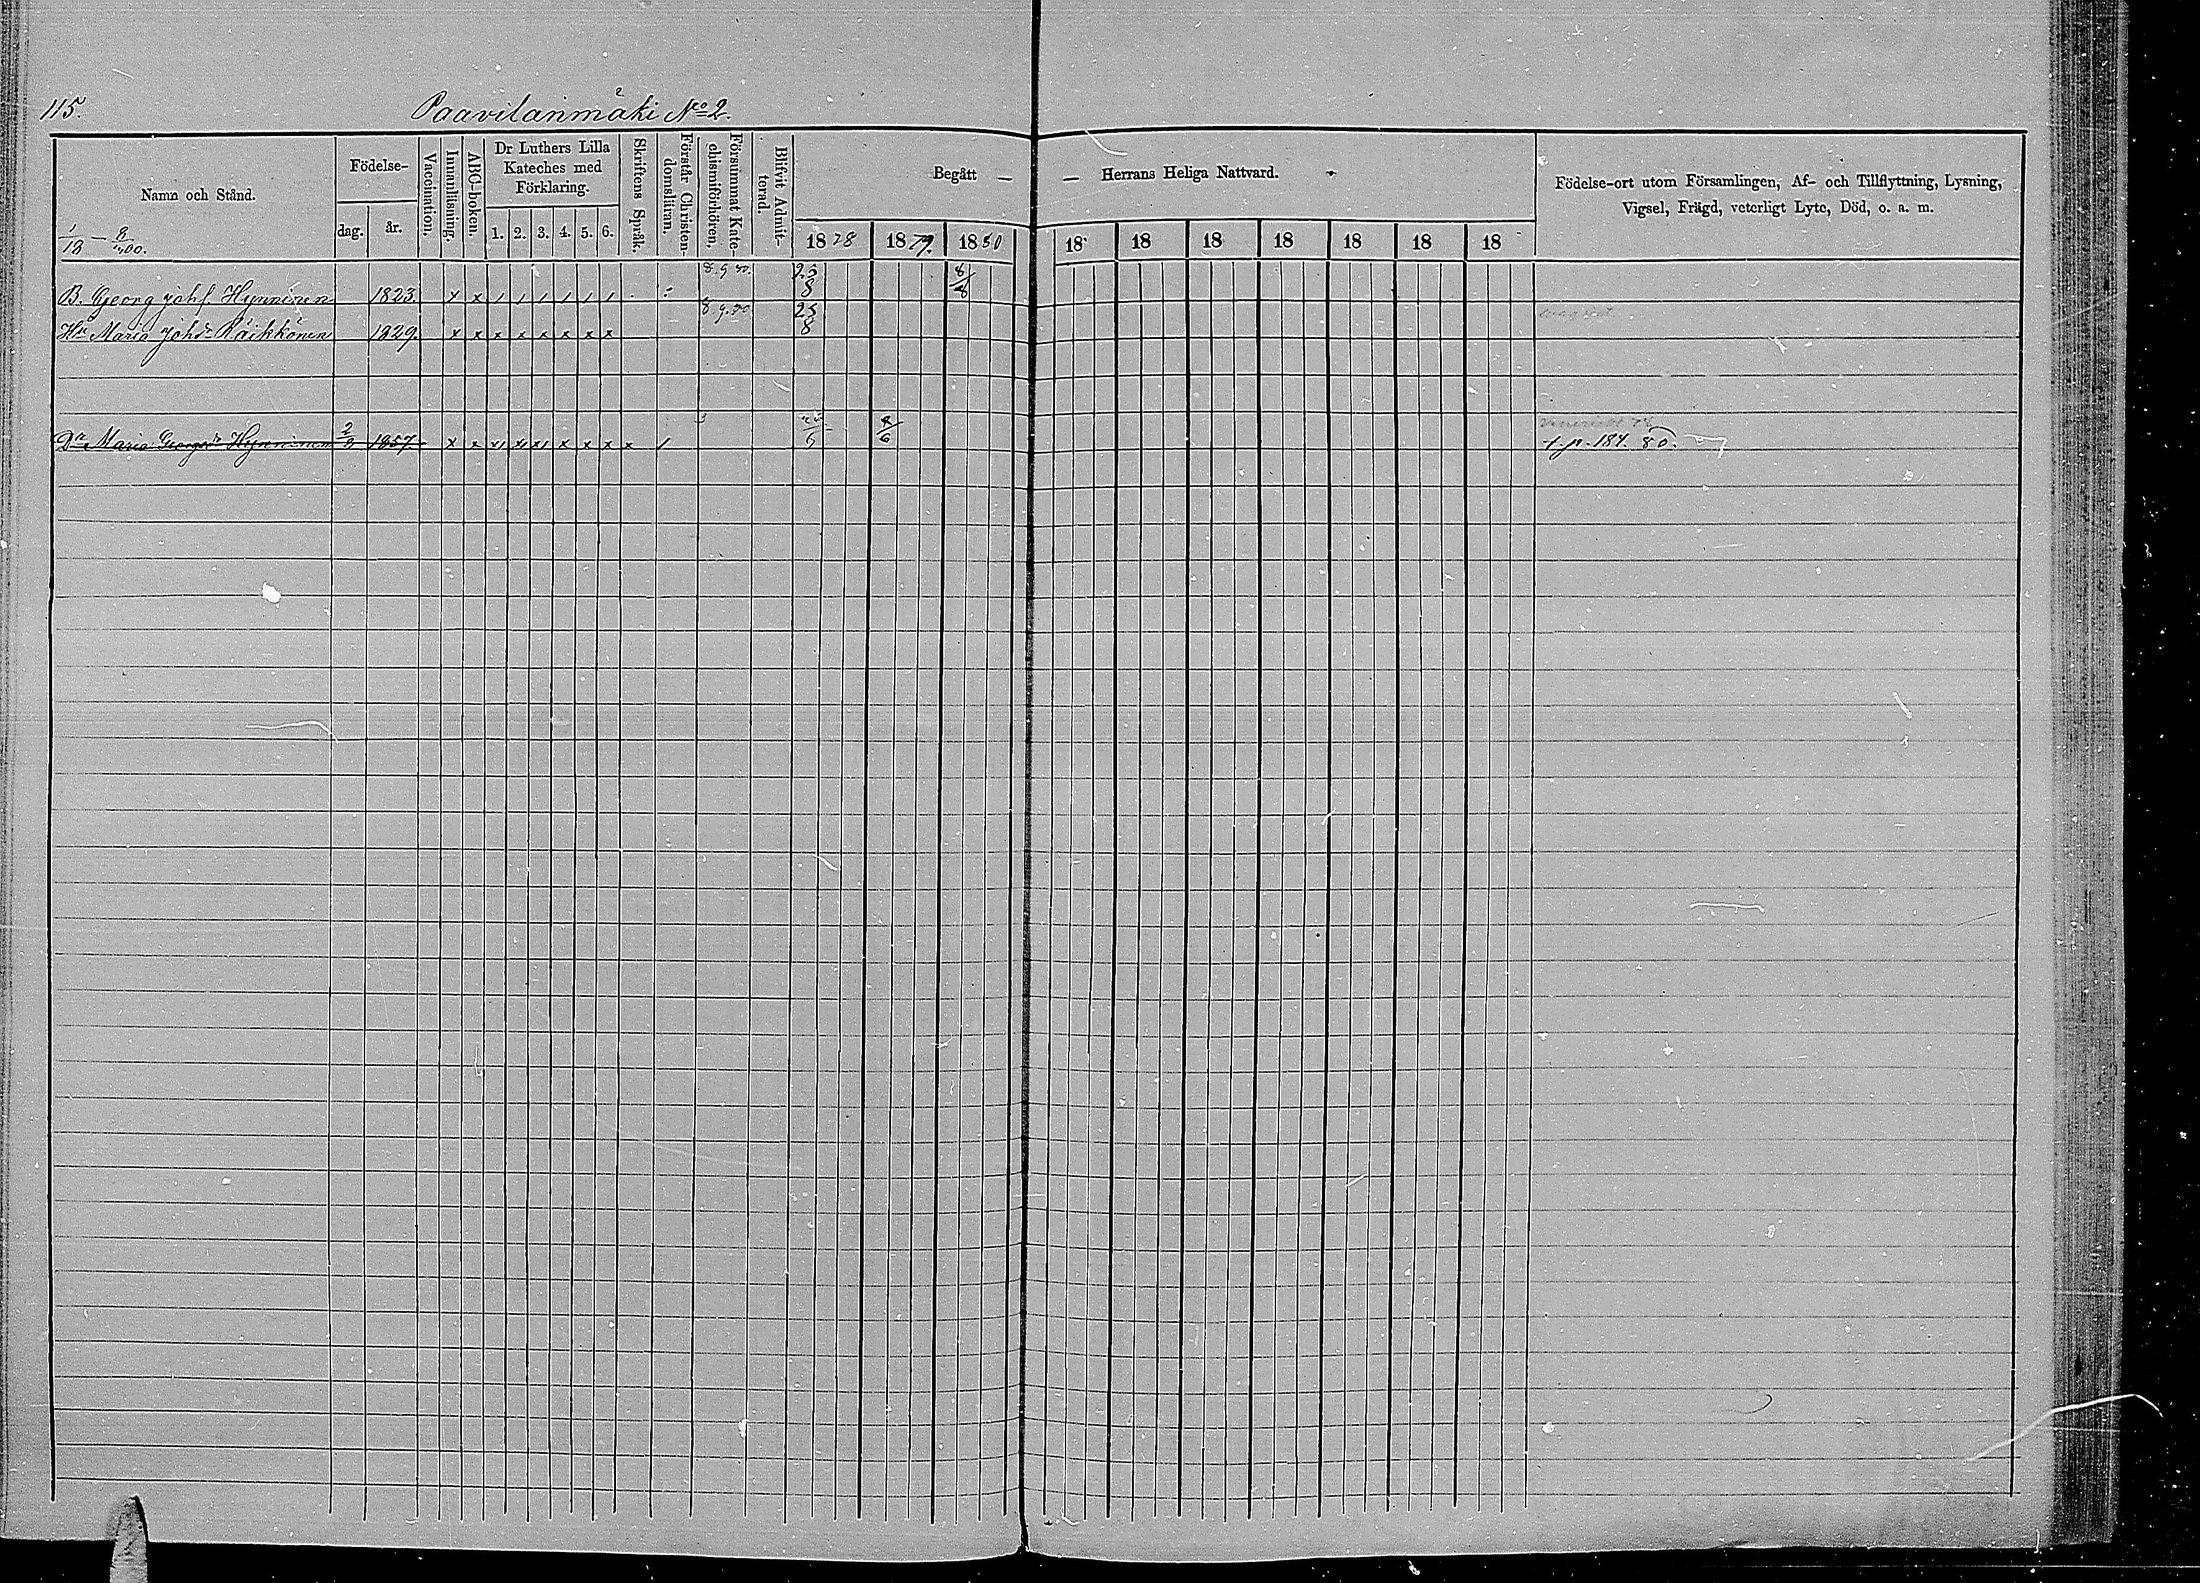 115. Paavilanmäki No 2.
Namn och Stånd.
Födelse-
dag. år.
Vaccination.
Innanläsning.
ABC-boken.
Dr Luthers Lilla
Kateches med
Förklaring.
1. 2. 3. 4. 5. 6.
Skriftens Språk.
Förstår Christen-
domsläran.
Försummat Kate-
chismiförhören.
Blifvit Admit-
terad.
Begått — — Herrans Heliga Nattvard.
1878 1879. 1880 18 18 18 18 18 18 18
Födelse-ort utom Församlingen, Af- och Tillflyttning, Lysning,
Vigsel, Frägd, veterligt Lyte, Död, o. s. m.
B. Georg Johs. Hynninen 1823. x x / / / / / / 8.9.80. 25/8 8/8
Hu Maria Johsdr Räikkönen 1829. x x x x x x x x 8.9.80 25/8
Dr Maria Georgsdr Hynninen 1857. x x x x x x x x x /
t. p. 184. 80.